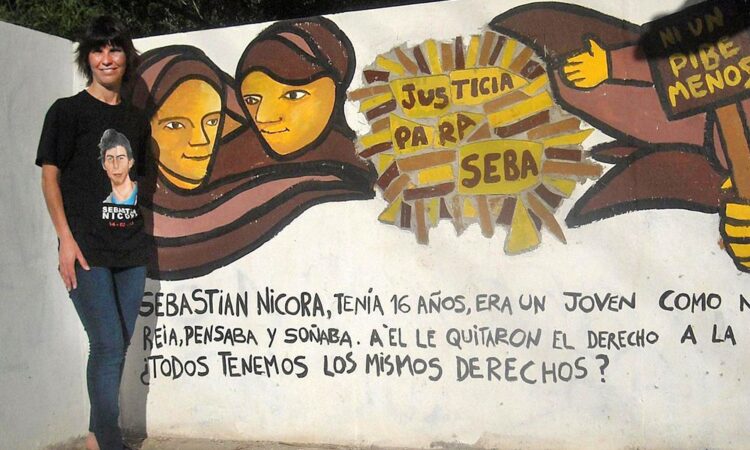 JUSTICIA
PARA
SEBA
NI UN
PIBE
MENOS
NICORA
SEBASTIAN NICORA, TENÍA 16 AÑOS, ERA UN JOVEN COMO
REIA, PENSABA Y SOÑABA. A ÉL LE QUITARON EL DERECHO A LA
¿TODOS TENEMOS LOS MISMOS DERECHOS?